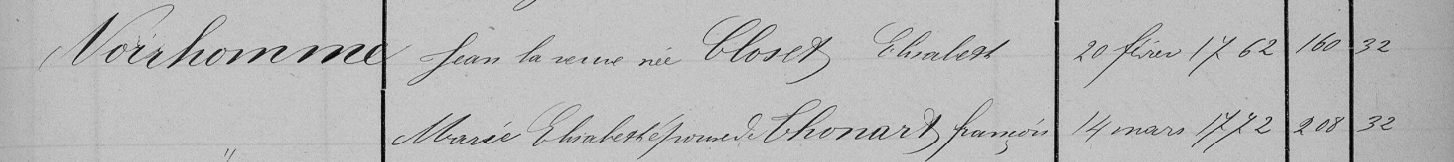 Noirhomme Jean la veuve née Closet Elisabeth 20 févrer 1762 160 32
Marie Elisabeth épouse de Thonart françois 14 mars 1772 208 32
"